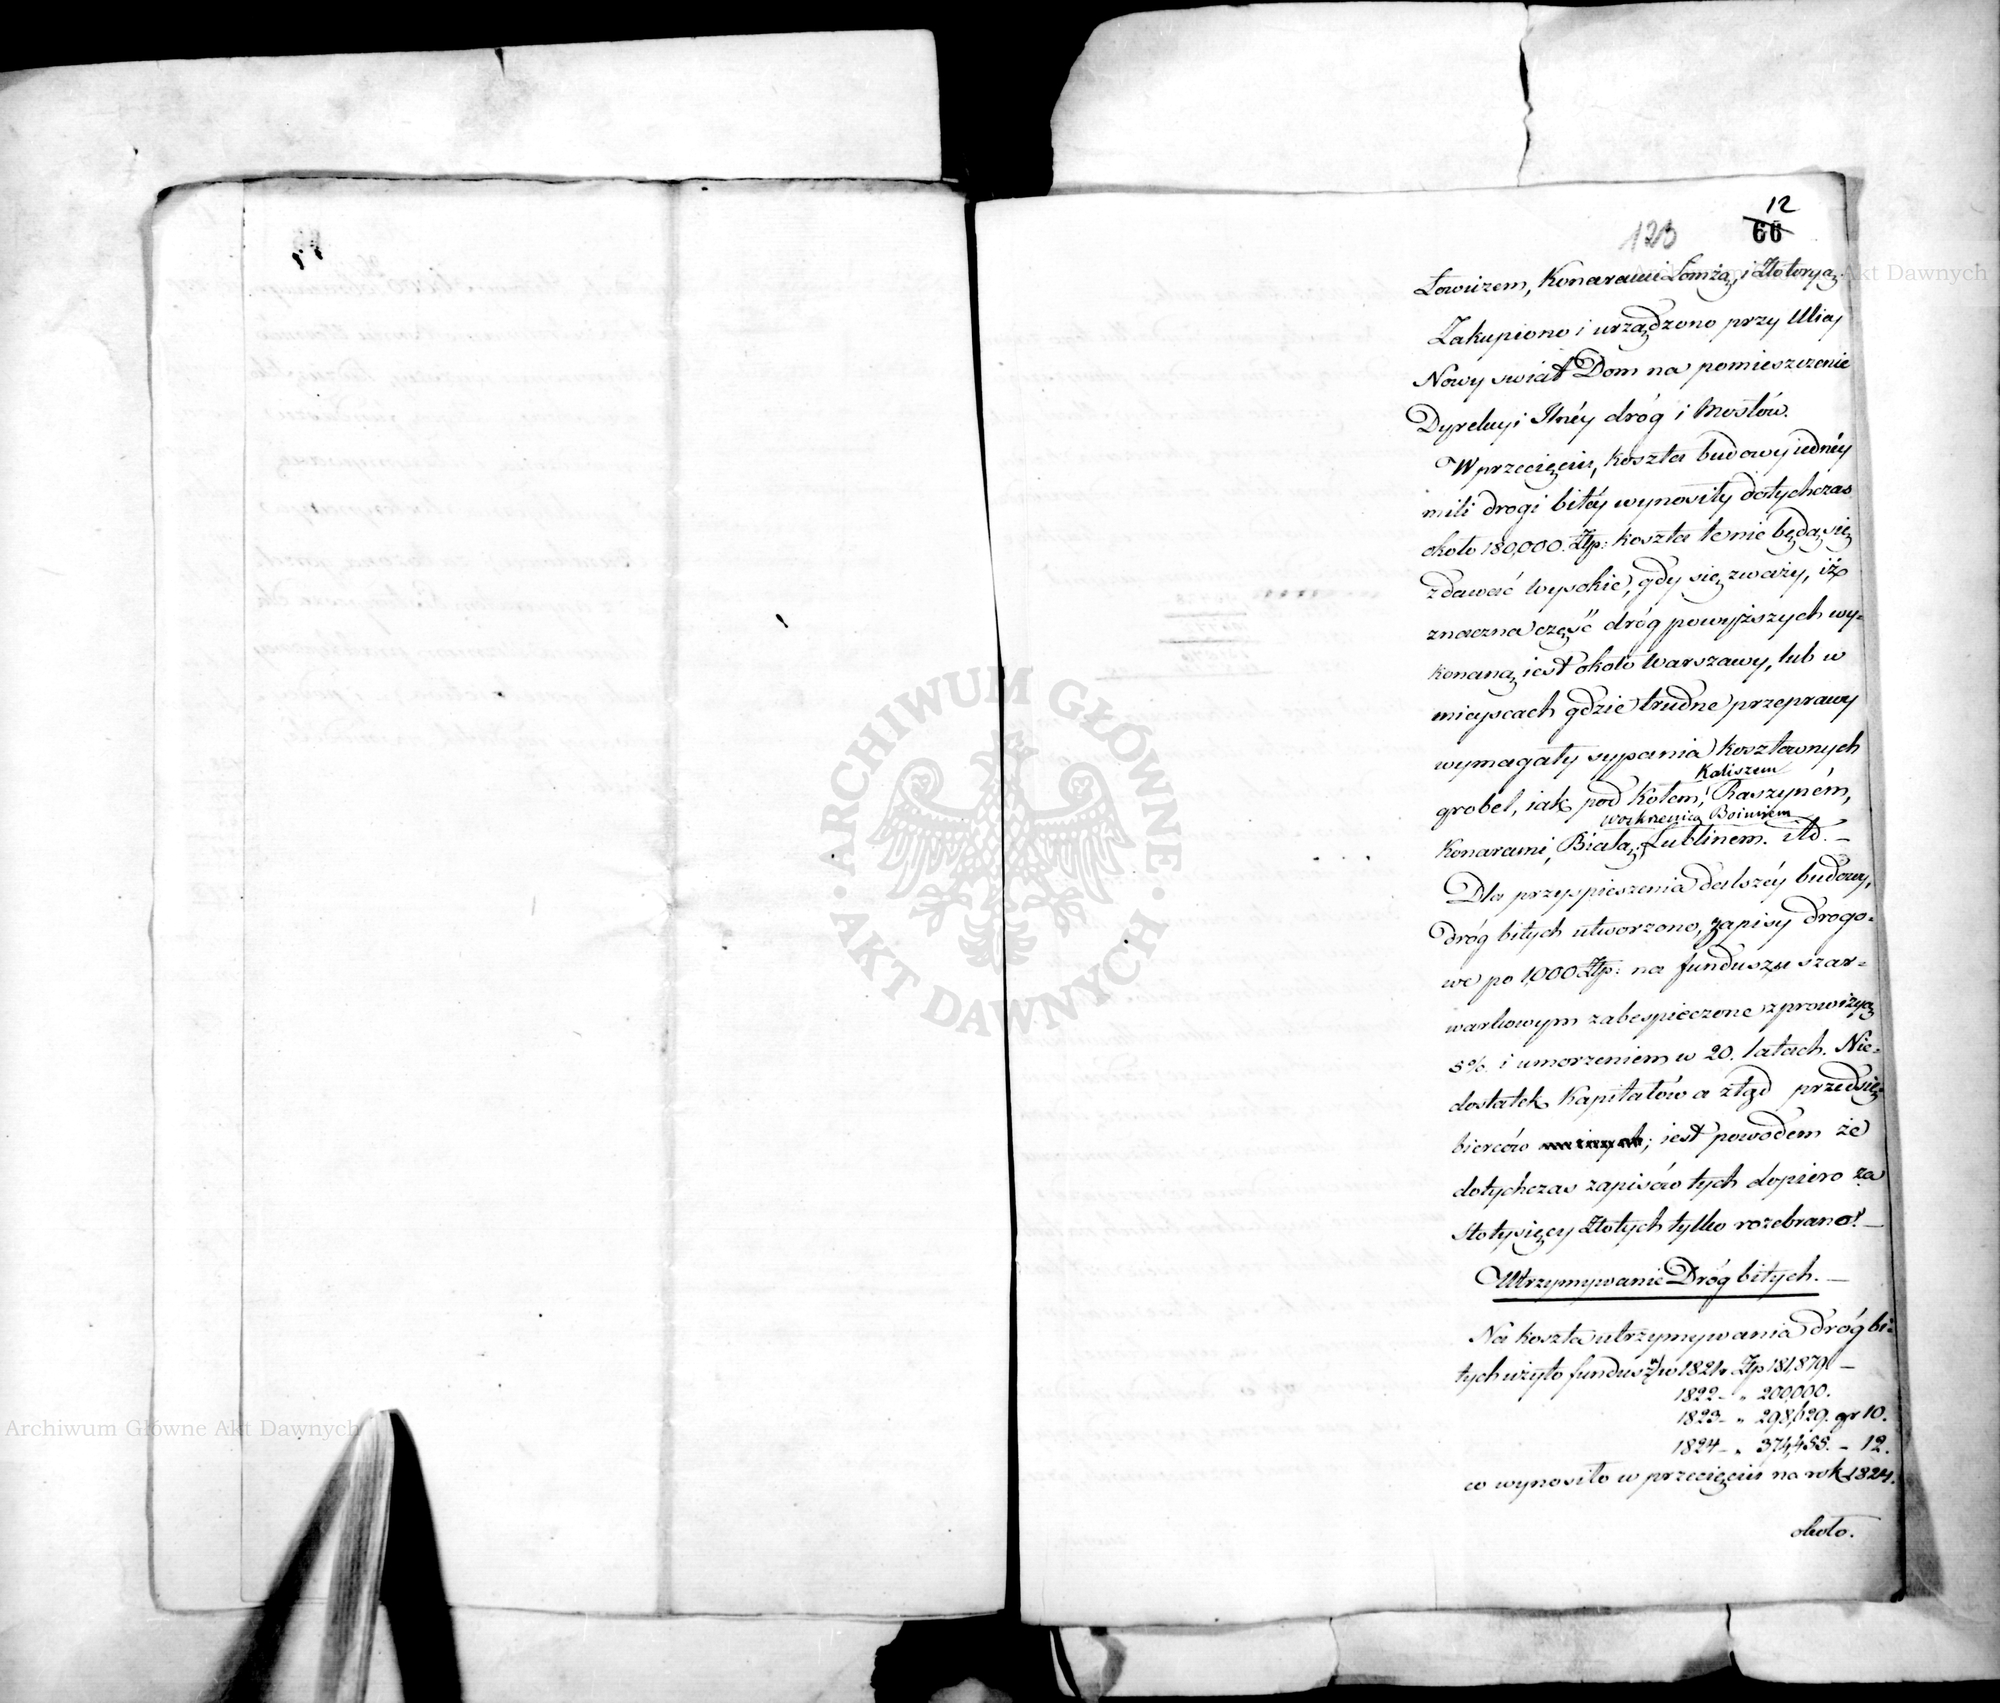 12
123 66
Łowiczem, Konarami Łomżą, i Złotoryą.
Zakupiono i urządzono przy Ulicy
Nowy świat Dom na pomieszczenie
Dyrekcyi Jlnéy dróg i Mostów.
W przecięciu, koszta budowy iednéy
mili drogi bitéy wynosiły dotychczas
około 180,000. Złp: koszta te nie będą się
zdawać wysokie, gdy się zważy, iż
znaczna część dróg powyższych wy-
konaną iest około Warszawy, lub w
mieyscach gdzie trudne przeprawy
wymagały sypania kosztownych
Kaliszem
grobel, iak pod Kołem, Raszyném,
Boimiem
Konarami, Białą, Lublinem. itd. —
Dla przyspieszenia dalszéy budowy,
dróg bitych utworzono, zapisy drogo-
we po 1,000 Złp: na funduszu szar-
warkowym zabespieczone z prowizyą
5%. i umorzeniem w 20. latach. Nie-
dostatek Kapitałów a ztąd przedsię-
bierców; iest powodem że
dotychczas zapisów tych dopiero za
Stotysięcy Złotych tylko rozebrano. —
Utrzymywanie Dróg bitych. —
Na koszta utrzymywania dróg bi-
tych użyto fundusz w 1821 r Złp 181,879. —
1822 — " 200,000.
1823 — " 298,629. gr 10.
1824 — " 374,455. — 12.
co wynosiło w przecięciu na rok 1824.
około.
ARCHIWUM GŁÓWNE
AKT DAWNYCH
Archiwum Główne Akt Dawnych
Akt Dawnych